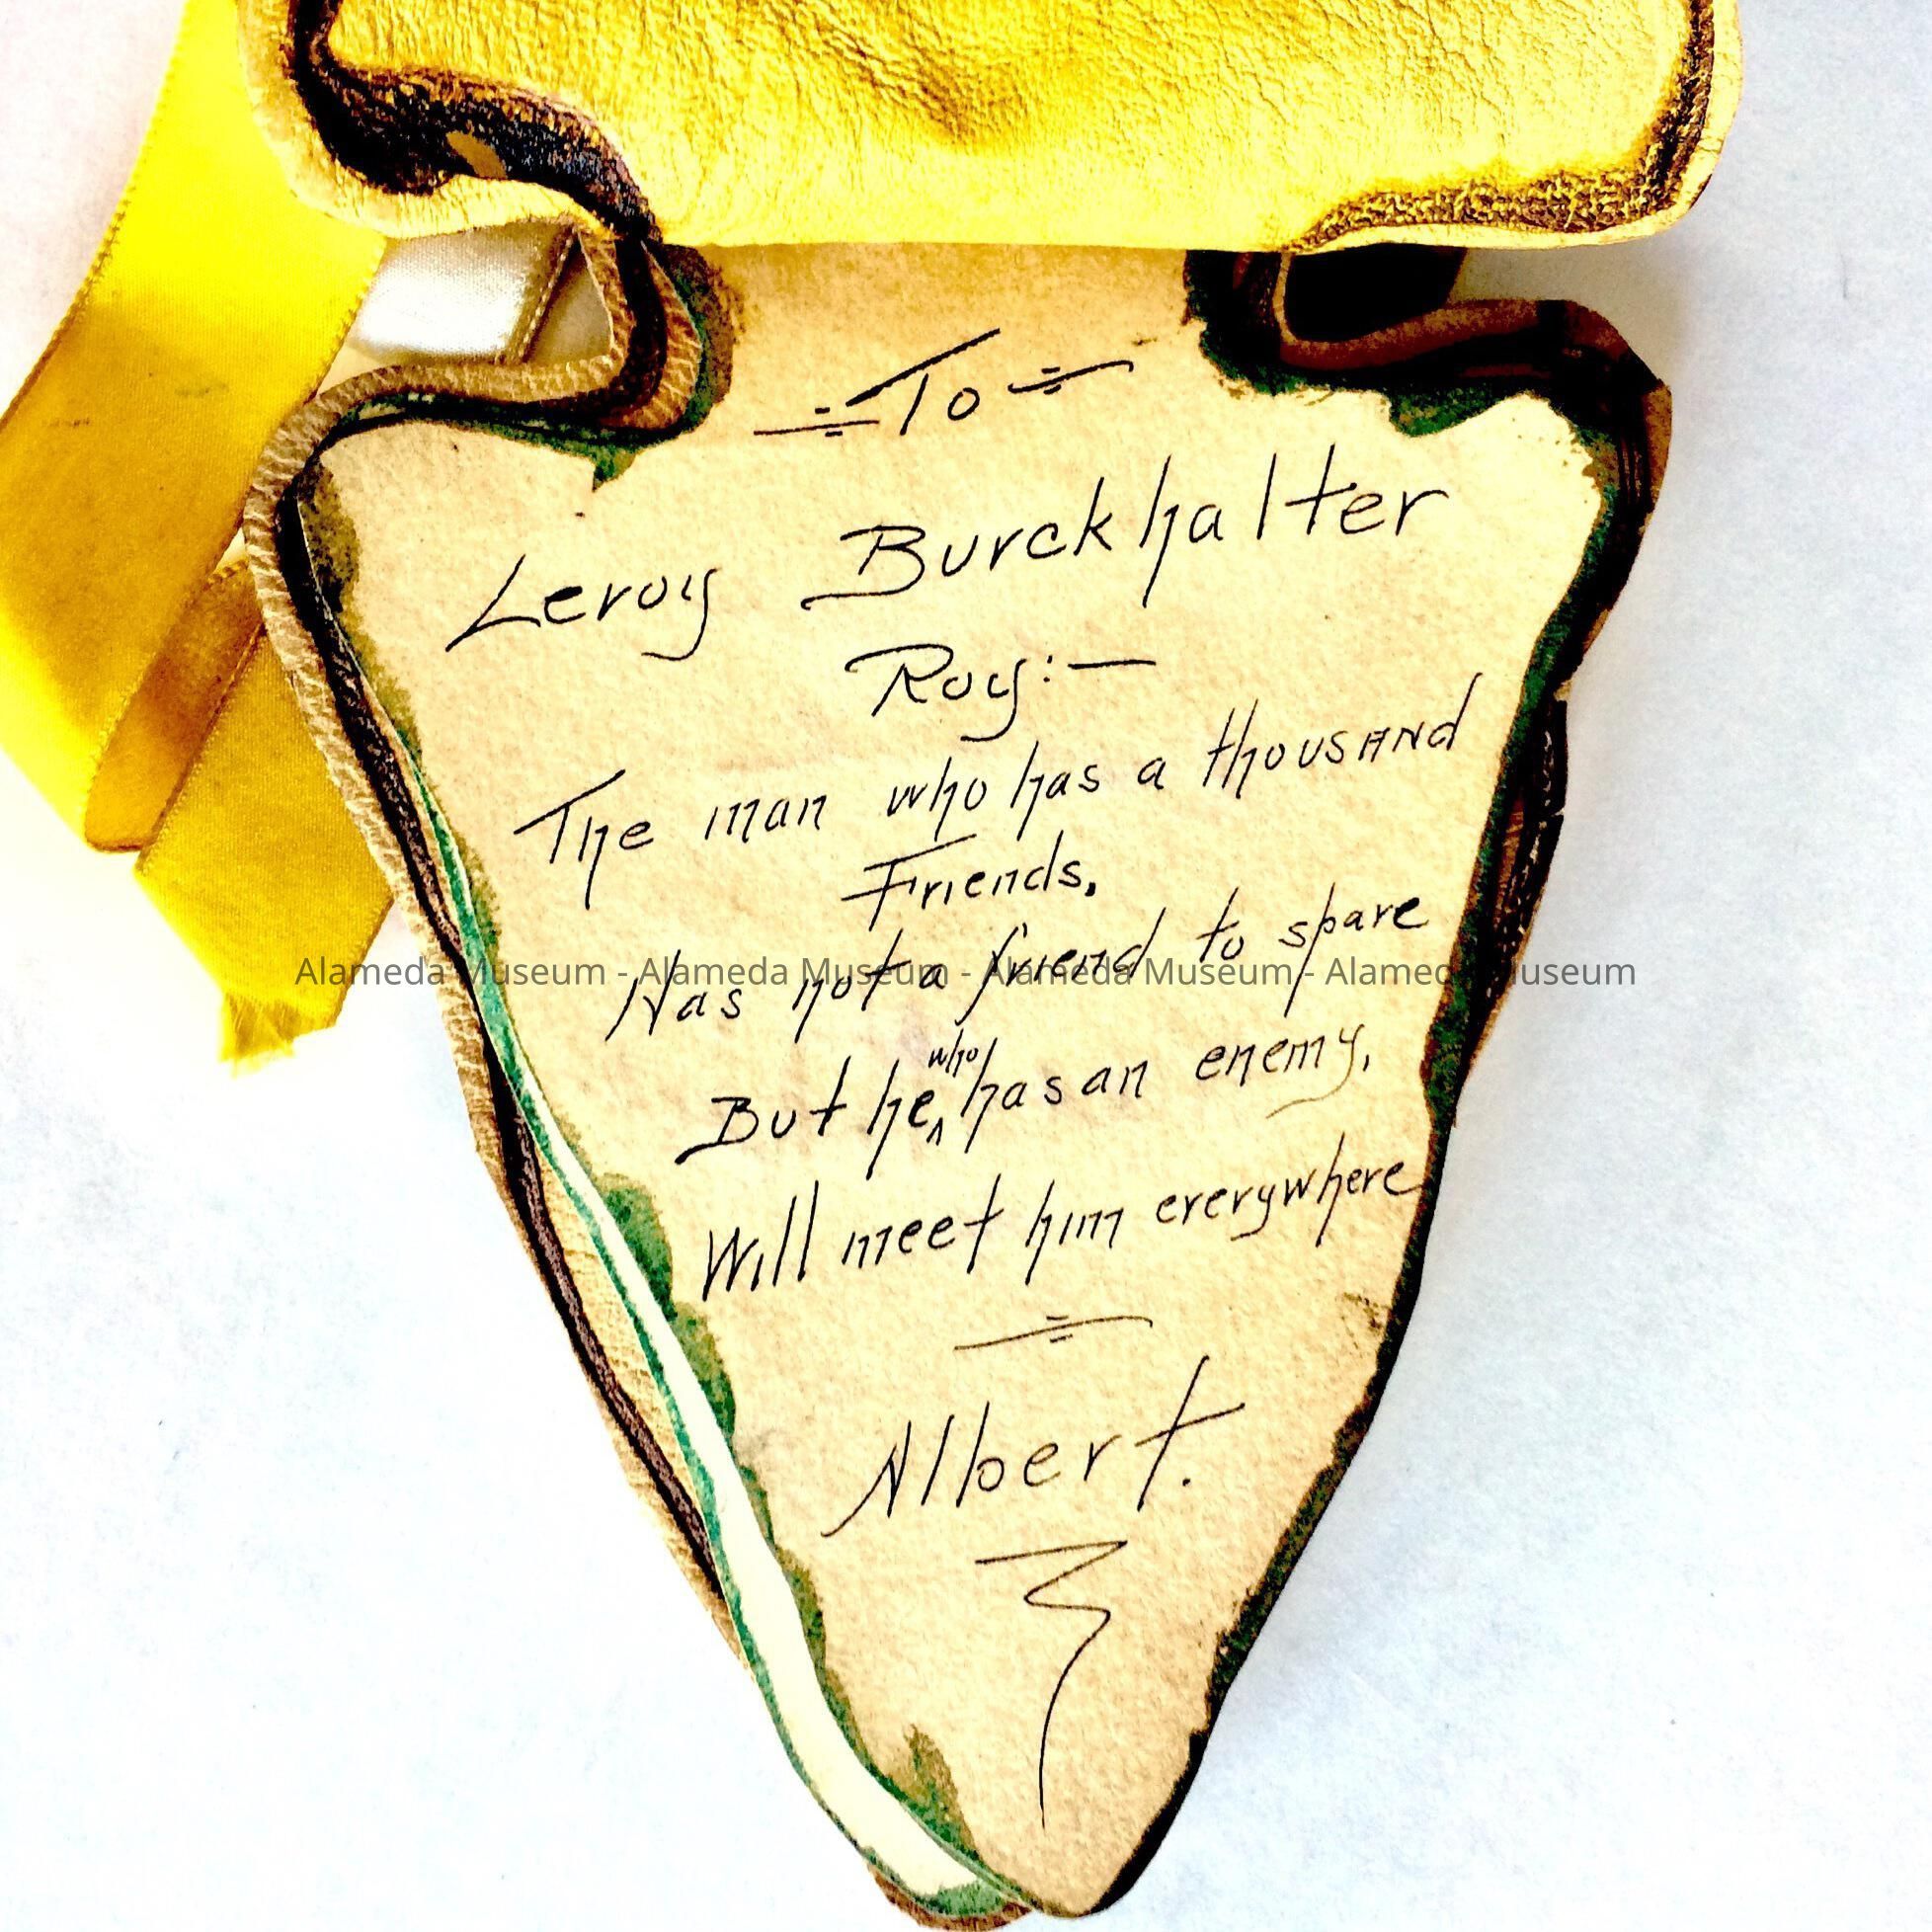 To
Leroy Burckhalter
Roy:—
The man who has a thousand
Friends,
Has not a friend to spare
Alameda Museum - Alameda Museum - Alameda Museum - Alameda Museum
But he who has an enemy,
Will meet him everywhere
Albert.